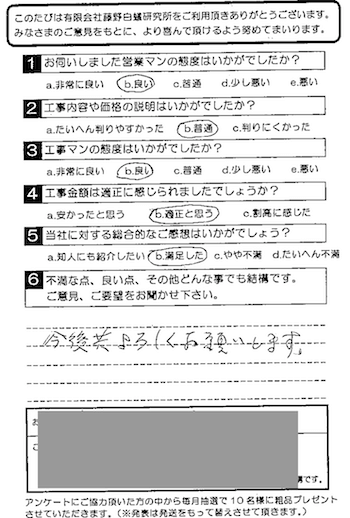 このたびは有限会社藤野白蟻研究所をご利用頂きありがとうございます。
みなさまのご意見をもとに、より喜んで頂けるよう努めてまいります。
1 お伺いしました営業マンの態度はいかがでしたか?
a.非常に良い b.良い c.普通 d.少し悪い e.悪い
2 工事内容や価格の説明はいかがでしたか?
a.たいへん判りやすかった b.普通 c.判りにくかった
3 工事マンの態度はいかがでしたか?
a.非常に良い b.良い c.普通 d.少し悪い e.悪い
4 工事金額は適正に感じられましたでしょうか?
a.安かったと思う b.適正と思う c.割高に感じた
5 当社に対する総合的なご感想はいかがでしょう?
a.知人にも紹介したい b.満足した c.やや不満 d.たいへん不満
6 不満な点、良い点、その他どんな事でも結構です。
ご意見、ご要望をお聞かせ下さい。
今後共よろしくお願いします。
お
ご
構です。
アンケートにご協力頂いた方の中から毎月抽選で10名様に粗品プレゼント
させていただきます。(※発表は発送をもって替えさせて頂きます。)